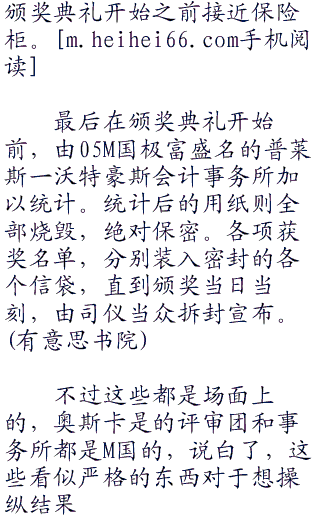 颁奖典礼开始之前接近保险
柜。[m.heihei66.com手机阅
读]
最后在颁奖典礼开始
前，由05M国极富盛名的普莱
斯一沃特豪斯会计事务所加
以统计。统计后的用纸则全
部烧毁，绝对保密。各项获
奖名单，分别装入密封的各
个信袋，直到颁奖当日当
刻，由司仪当众拆封宣布。
(有意思书院)
不过这些都是场面上
的，奥斯卡是的评审团和事
务所都是M国的，说白了，这
些看似严格的东西对于想操
纵结果